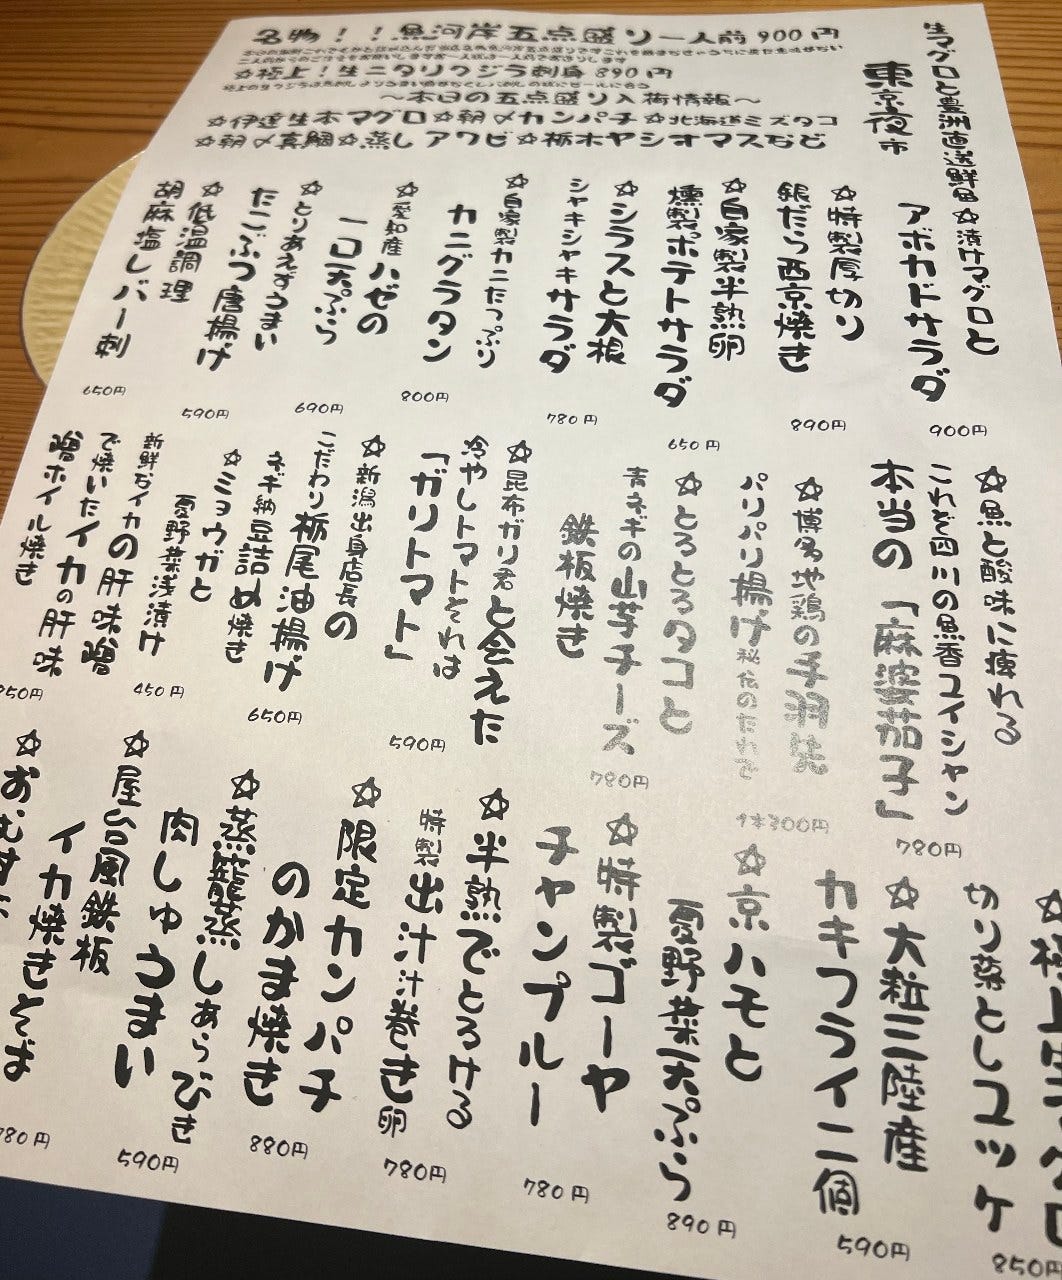 名物！！魚河岸五点盛り一人前900円
☆極上！生ニタリクジラ刺身890円
〜本日の五点盛り入荷情報〜
☆伊達生本マグロ☆朝〆カンパチ☆北海道ミズタコ
☆朝〆真鯛☆蒸しアワビ☆栃木ヤシオマスなど
生マグロと豊洲直送鮮魚
東京夜市
☆漬けマグロと
アボカドサラダ
900円
☆特製厚切り
銀だら西京焼き
890円
☆自家製半熟卵
燻製ポテトサラダ
650円
☆シラスと大根
シャキシャキサラダ
780円
☆自家製カニたっぷり
カニグラタン
800円
☆愛知産ハゼの
一口天ぷら
690円
☆とりあえずうまい
たこぶつ唐揚げ
590円
☆低温調理
胡麻塩レバー刺
650円
☆魚と酸味に痺れる
これぞ四川の魚香ユイシャン
本当の「麻婆茄子」
780円
☆博多地鶏の手羽先
パリパリ揚げ秘伝のたれで
1本300円
☆とろとろタコと
青ネギの山芋チーズ
鉄板焼き
780円
☆昆布ガリ君と会えた
冷やしトマトそれは
「ガリトマト」
590円
☆新潟出身店長の
こだわり栃尾油揚げ
ネギ納豆詰め焼き
650円
☆ミョウガと
夏野菜浅漬け
450円
新鮮なイカの肝味噌
で焼いたイカの肝味
噌ホイル焼き
850円
切り落としユッケ
850円
☆大粒三陸産
カキフライ二個
590円
☆京ハモと
夏野菜天ぷら
890円
☆特製ゴーヤ
チャンプルー
780円
☆半熟でとろける
特製出汁汁巻き卵
780円
☆限定カンパチ
のかま焼き
880円
☆蒸籠蒸しあらびき
肉しゅうまい
590円
☆屋台風鉄板
イカ焼きそば
780円